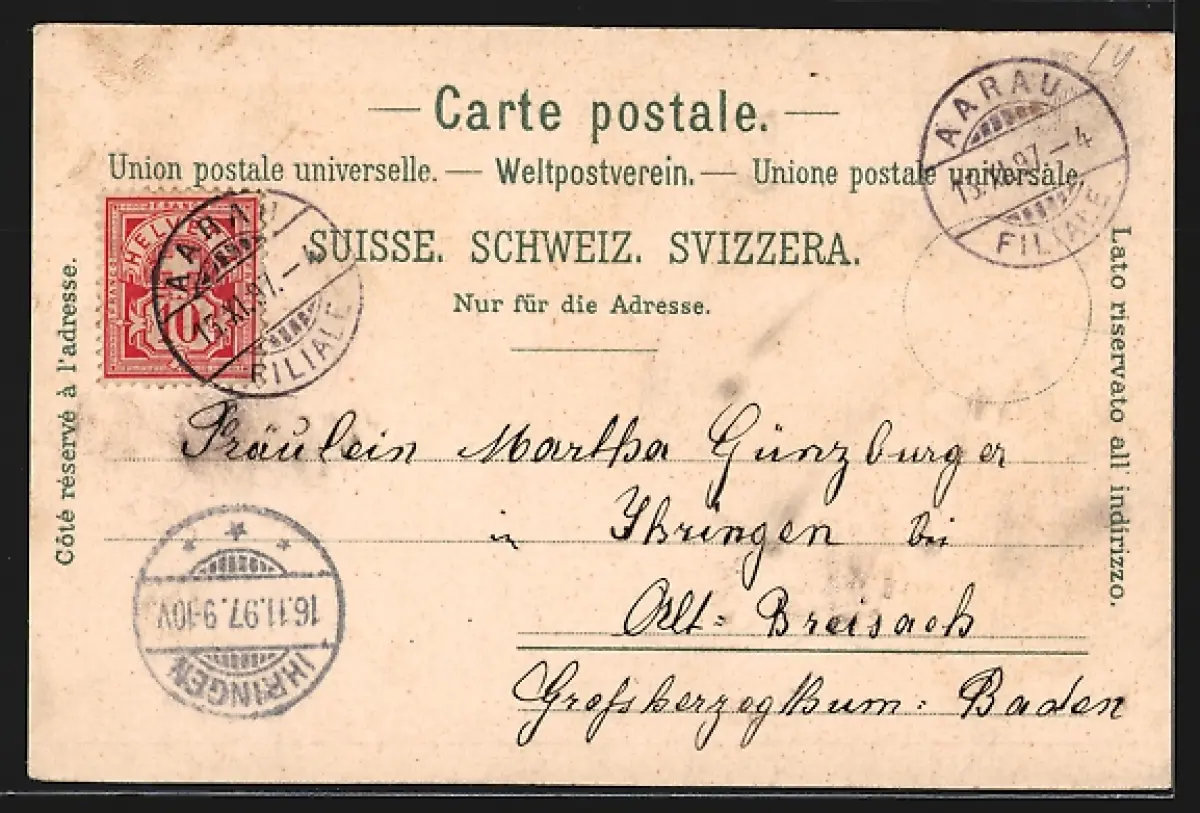 LY
— Carte postale. —
Union postale universelle. — Weltpostverein. — Unione postale universale.
SUISSE. SCHWEIZ. SVIZZERA.
Nur für die Adresse.
Côté réservé à l'adresse.
Lato riservato all' indirizzo.
FRANCO
HELVETIA
10
AARAU
13.XI.97.–4
FILIALE
AARAU
13.XI.97.–4
FILIALE
Fräulein Martha Günzburger
in Ihringen bei
Alt=Breisach
Großherzogthum: Baden
16.11.97.9-10V.
IHRINGEN